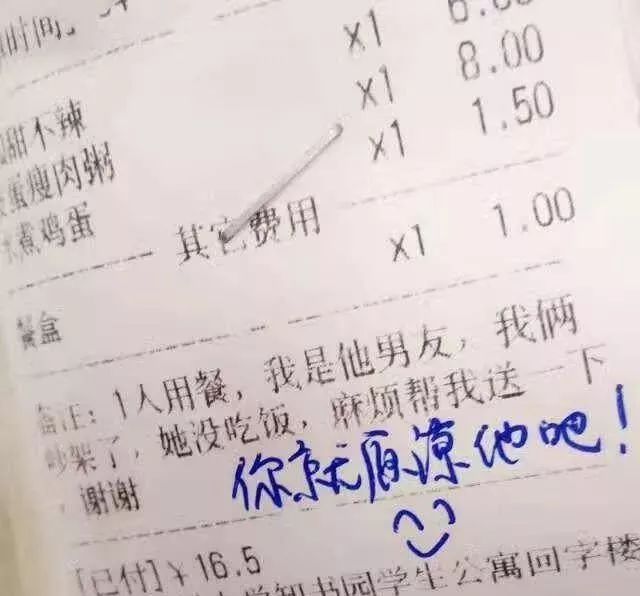 时间:
x1 6.00
甜不辣 x1 8.00
蛋瘦肉粥 x1 1.50
煮鸡蛋
其它费用
餐盒 x1 1.00
备注: 1人用餐, 我是他男友, 我俩
吵架了, 她没吃饭, 麻烦帮我送一下
, 谢谢
你就原谅他吧!
[已付] ¥16.5
学知书园学生公寓回字楼